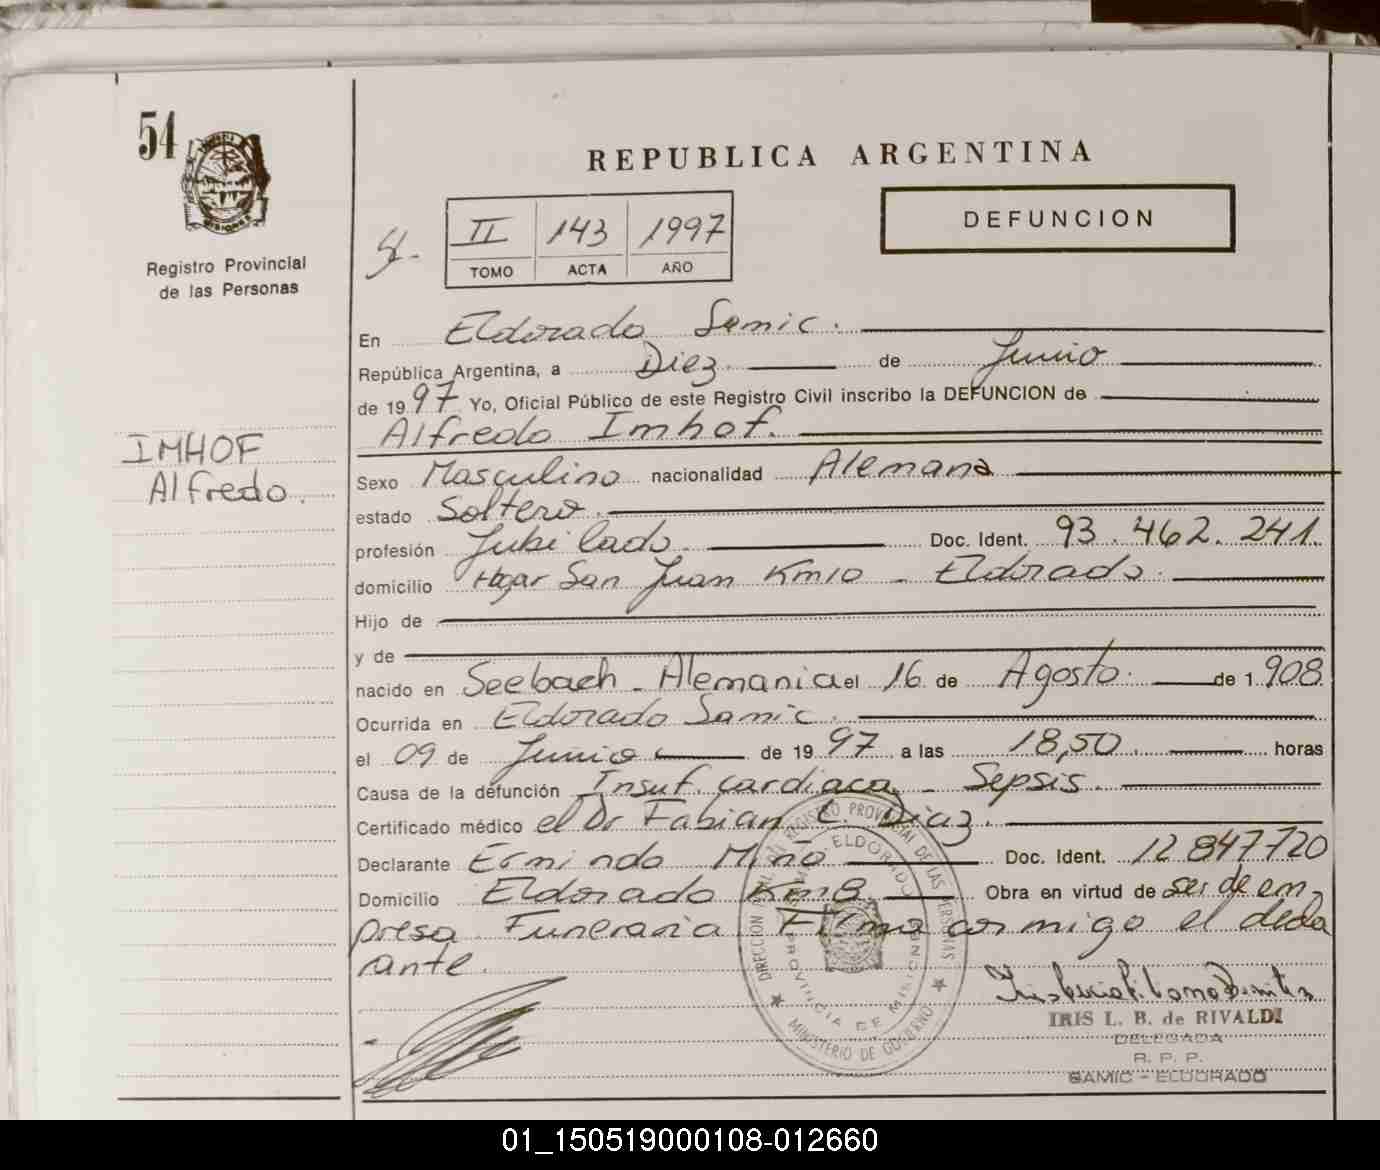 54
REPUBLICA ARGENTINA
DEFUNCION
II 143 1997
TOMO ACTA AÑO
Registro Provincial
de las Personas
IMHOF
Alfredo.
En Eldorado Samic.
República Argentina, a Diez. de Junio
de 1997 Yo, Oficial Público de este Registro Civil inscribo la DEFUNCION de
Alfredo Imhof.
Sexo Masculino nacionalidad Alemana
estado Soltero.
profesión Jubilado. Doc. Ident. 93.462.241.
domicilio Hogar San Juan Km10 - Eldorado.
Hijo de
y de
nacido en Seebach - Alemania el 16 de Agosto. de 1.908
Ocurrida en Eldorado Samic.
el 09 de Junio de 1997 a las 18,50. horas
Causa de la defunción Insuf. cardiaca - Sepsis.
Certificado médico el Dr Fabian C. Diaz.
Declarante Ermindo Miño Doc. Ident. 12 847720
Domicilio Eldorado Km8 Obra en virtud de ser de em-
presa Funeraria Firma conmigo el decla
rante.
DIRECCION REGISTRO PROVINCIAL DE LAS PERSONAS
ELDORADO
PROVINCIA DE MISIONES
MINISTERIO DE GOBIERNO
IRIS L. B. de RIVALDI
DELEGADA
R. P. P.
SAMIC - ELDORADO
01_150519000108-012660